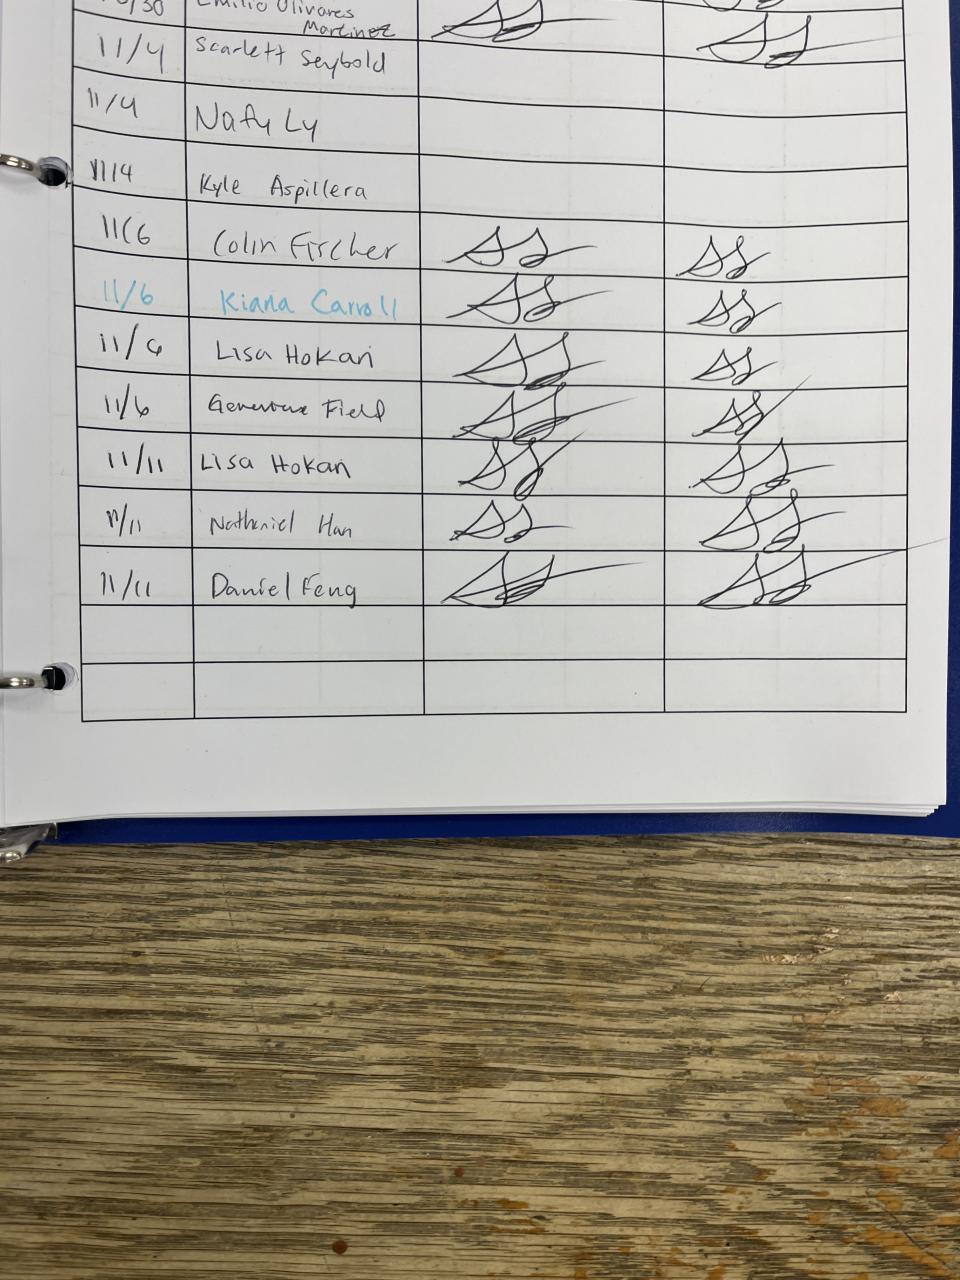 10/30 Emilio Olivares
Martinez
11/4 Scarlett Seybold
11/4 Nafy Ly
11/4 Kyle Aspillera
11/6 Colin Fircher
11/6 Kiana Carroll
11/6 Lisa Hokari
11/6 Genevieve Field
11/11 Lisa Hokari
11/11 Nathaniel Han
11/11 Daniel Feng